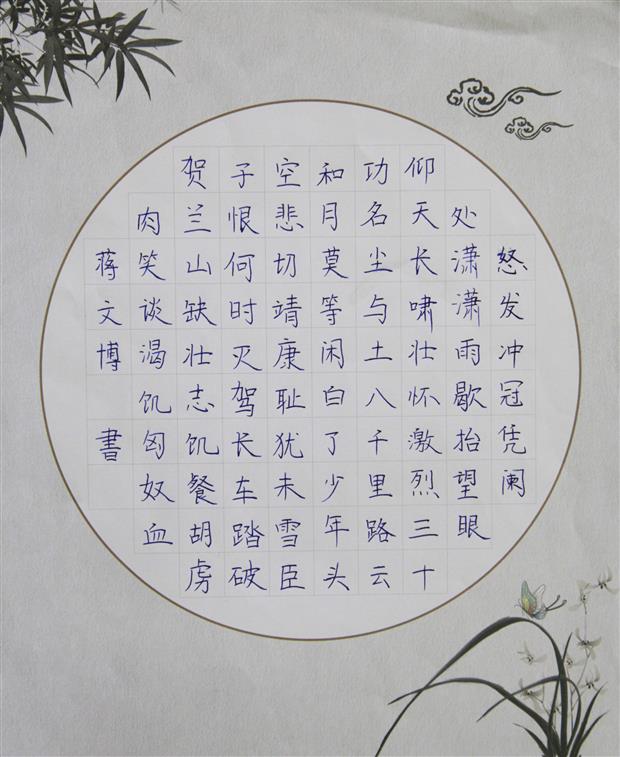 怒发冲冠凭阑
处潇潇雨歇抬望眼
仰天长啸壮怀激烈三十
功名尘与土八千里路云
和月莫等闲白了少年头
空悲切靖康耻犹未雪臣
子恨何时灭驾长车踏破
贺兰山缺壮志饥餐胡虏
肉笑谈渴饥匈奴血
蒋文博 書